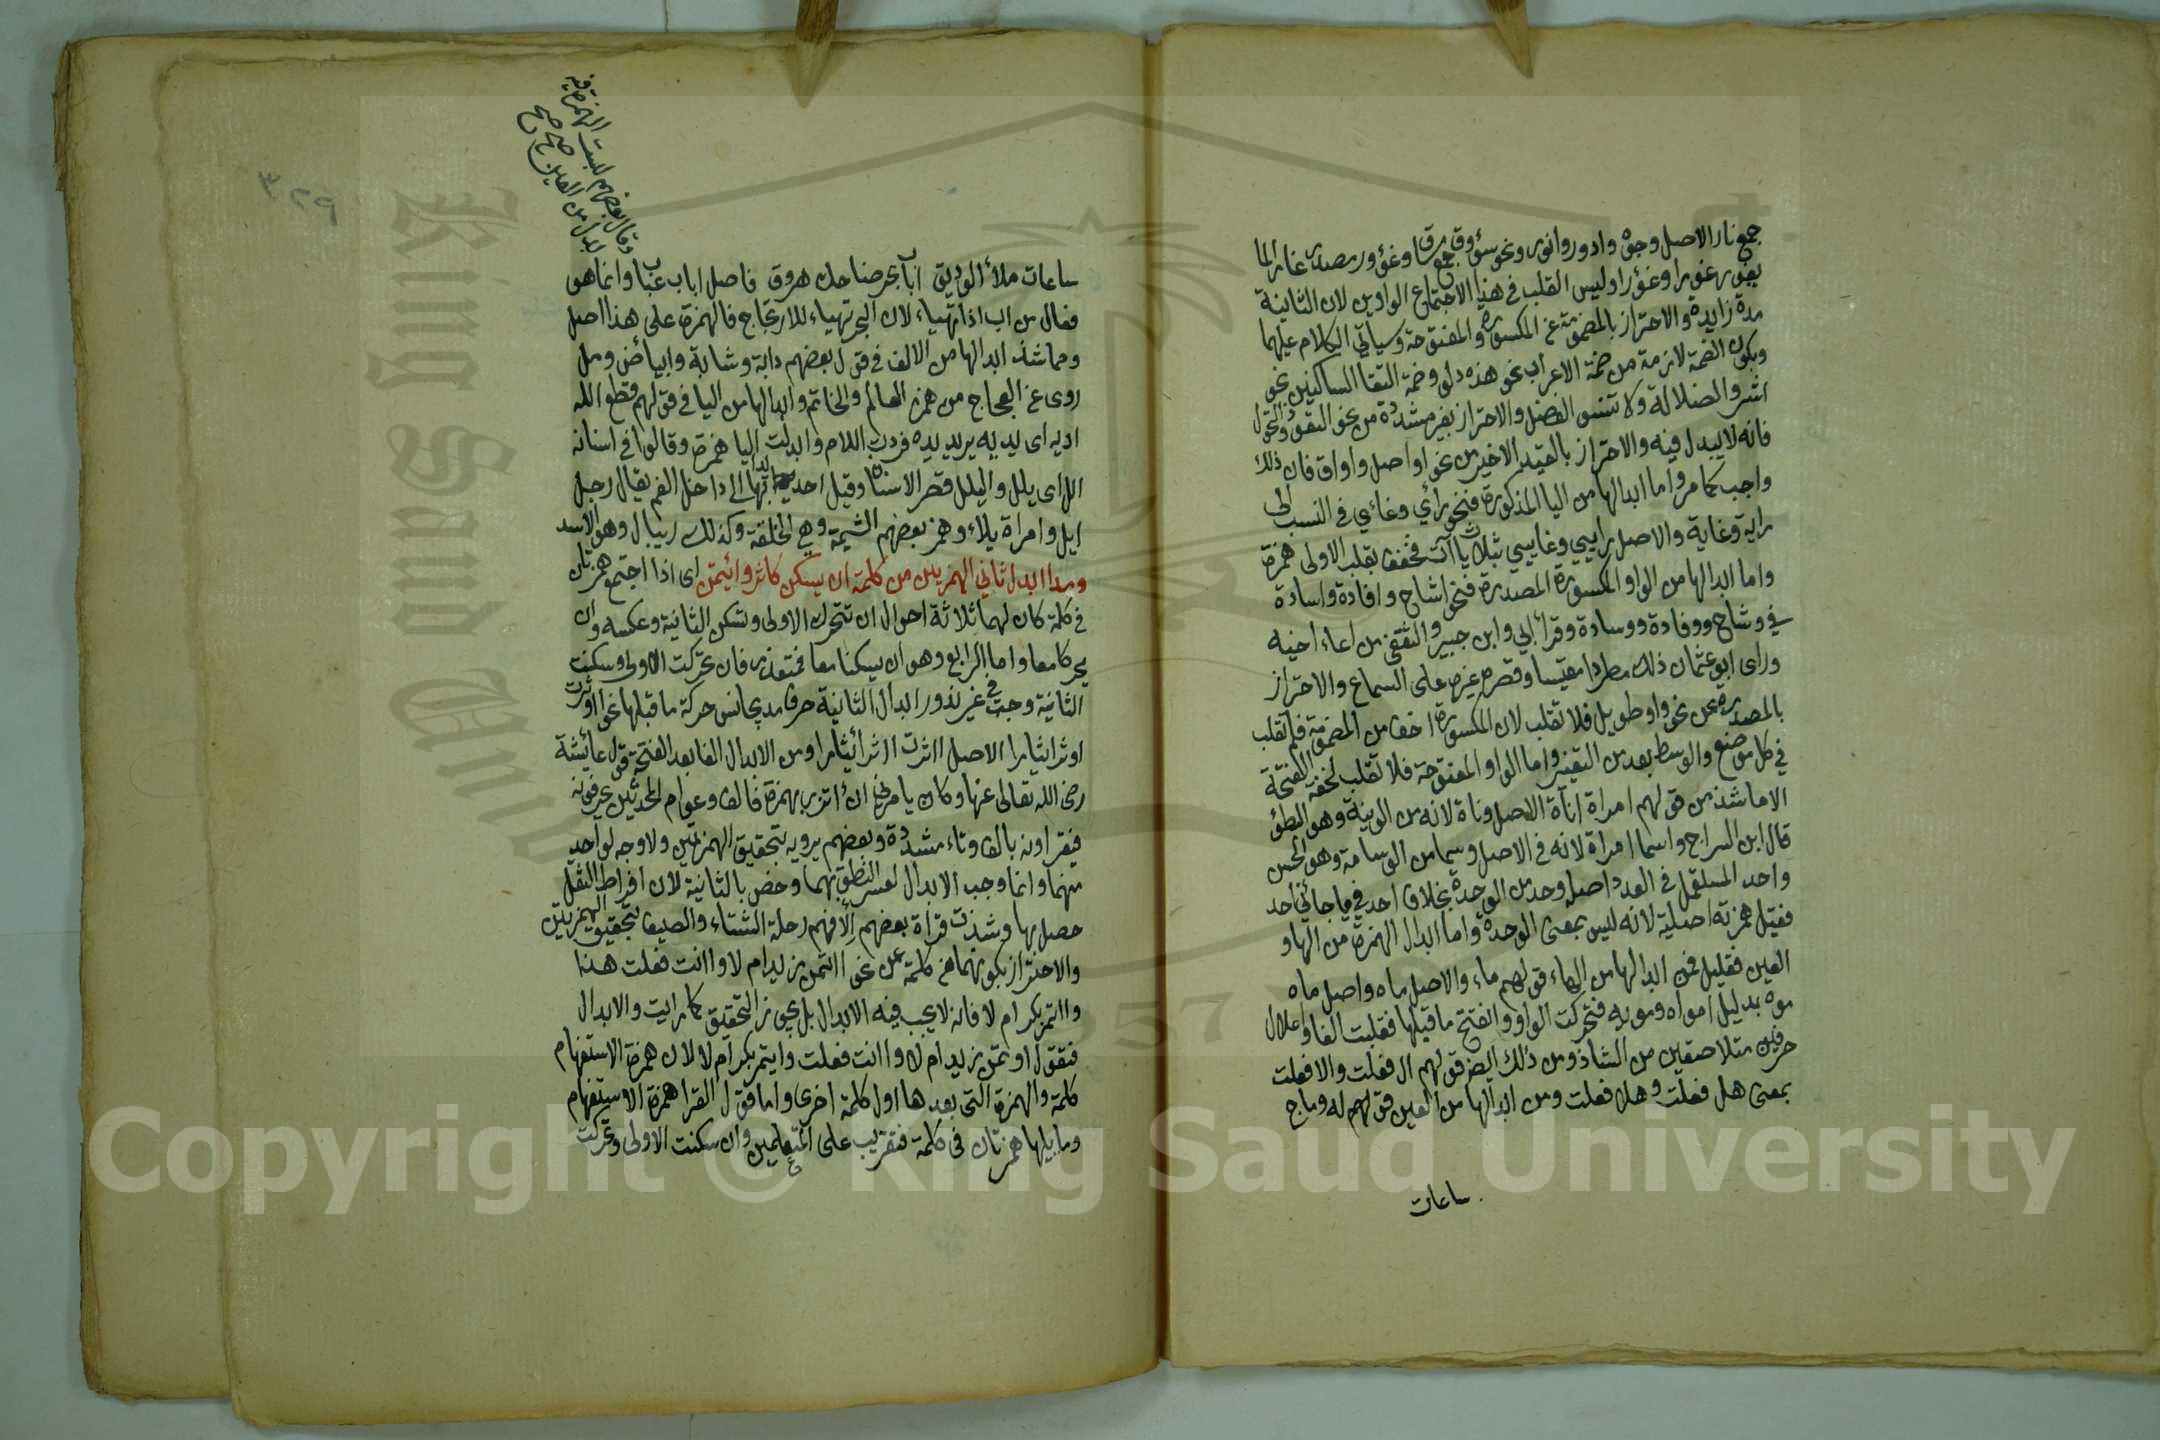 جمع نار الاصل وجوه وادور وانور ونحو سؤوق جمع ساق وغؤور مصدر غار الما
يغور غورا وغؤرا وليس القلب في هذا الاجتماع الواوين لان الثانية
مدة زايدة والاحتراز بالمضمومة عن المكسورة والمفتوحة وسياتي الكلام عليهما
وبكون الضمة لازمة من ضمة الاعراب نحو هذه دلو وضمة التقا الساكنين نحو
اشتروا الضلالة ولا تنسوا الفضل والاحتراز بغير مشددة من نحو التعوذ والتحول
فانه لا يبدل فيه والاحتراز بالقيد الاخير من نحو اواصل واواق فان ذلك
واجب كما مر واما ابدالها من اليا المذكورة فنحو رائي وغائي في النسب الى
راية وغاية والاصل راييي وغاييي بثلاث ياآت فخفف بقلب الاولى همزة
واما ابدالها من الواو المكسورة المصدرة فنحو اشاح وافادة واسادة
في وشاح ووفادة ووسادة وقرأ ابي وابن جبير والثقفي من اعاء اخيه
وراى ابو عثمان ذلك مطردا مقيسا وقصره غيره على السماع والاحتراز
بالمصدرة عن نحو واو طويل فلا تقلب لان المكسورة اخف من المضمومة فلم تقلب
في كل موضع والوسط بعد من التغيير واما الواو المفتوحة فلا تقلب لخفة الفتحة
الا ما شذ من قولهم امراة اناة الاصل وناة لانه من الونية وهو البطؤ
قال ابن السراج واسما امراة لانه في الاصل وسما من الوسامة وهو الحسن
واحد المستعمل في العدد اصله وحد من الوحدة بخلاف احد في ما جاني احد
فقيل همزته اصلية لانه ليس بمعنى الوحدة واما ابدال الهمزة من الها و
العين فقليل فمن ابدالها من الهاء قولهم ماء والاصل ماه واصل ماه
موه بدليل امواه ومويه فتحركت الواو وانفتح ما قبلها فقلبت الفا واعلال
حرفين متلاصقين من الشاذ ومن ذلك ايضا قولهم ال فعلت والا فعلت
بمعنى هل فعلت وهلا فعلت ومن ابدالها من العين قولهم له وماج
ساعات
٣٢٩
وقال بعضهم ليست الهمزة فيه
بدل من العين صح صح
ساعات ملأ الوديق اباب بحر ضاحك هزوق فاصل اباب عباب وانما هو
فعال من اب اذا تهياء لان البحر تهياء للارتجاج فالهمزة على هذا اصل
ومما شذ ابدالها من الالف في قول بعضهم دابة وشابة وابيائض ومل
روى عن العجاج من همز العالم والخاتم وابدالها من اليا في قولهم قطع الله
اديه اى يديه يريد يده فردت اللام وابدلت اليا همزة وقالوا في اسنانه
الل اى يلل واليلل قصر الاسنان وقيل احديدابها الى داخل الفم يقال رجل
ايل وامراة يلاء وهمز بعضهم الشيمة وهي الخلقة وكذلك ريبال وهو الاسد
ومدا ابدل ثاني الهمزين من كلمة ان يسكن كاثر وائتمن اى اذا اجتمع همزتان
في كلمة كان لهما ثلاثة احوال ان تتحرك الاولى وتسكن الثانية وعكسه وان
يحركا معا واما الرابع وهو ان يسكنا معا فمتعذر فان تحركت الاولى وسكنت
الثانية وجب في غير ندور ابدال الثانية حرف مد يجانس حركة ما قبلها نحو اثرت
اوثر ايثارا الاصل ااثرت ااثر ائثارا ومن الابدال الفا بعد الفتحة قول عائشة
رضى الله تعالى عنها وكان يامرني ان ااتزر بهمزة فالف وعوام المحدثين يحرفونه
فيقراونه بالف وتاء مشددة وبعضهم يرويه بتحقيق الهمزتين ولا وجه لواحد
منهما وانما وجب الابدال لعسر النطق بهما وخص بالثانية لان افراط الثقل
حصل بها وشذت قراة بعضهم إألافهم رحلة الشتاء والصيف بتحقيق الهمزتين
والاحتراز بكونهما في كلمة عن نحو ااتمن زيد ام لا واانت فعلت هذا
وااتمر بكر ام لا فانه لا يجب فيه الابدال بل يجوز التحقيق كما رايت والابدال
فتقول اوتمن زيد ام لا واانت فعلت وايتمر بكر ام لا لان همزة الاستفهام
كلمة والهمزة التي بعدها اول كلمة اخرى واما قول القرا همزة الاستفهام
وما يليها همزتان في كلمة فتقريب على المتعلمين وان سكنت الاولى وتحركت